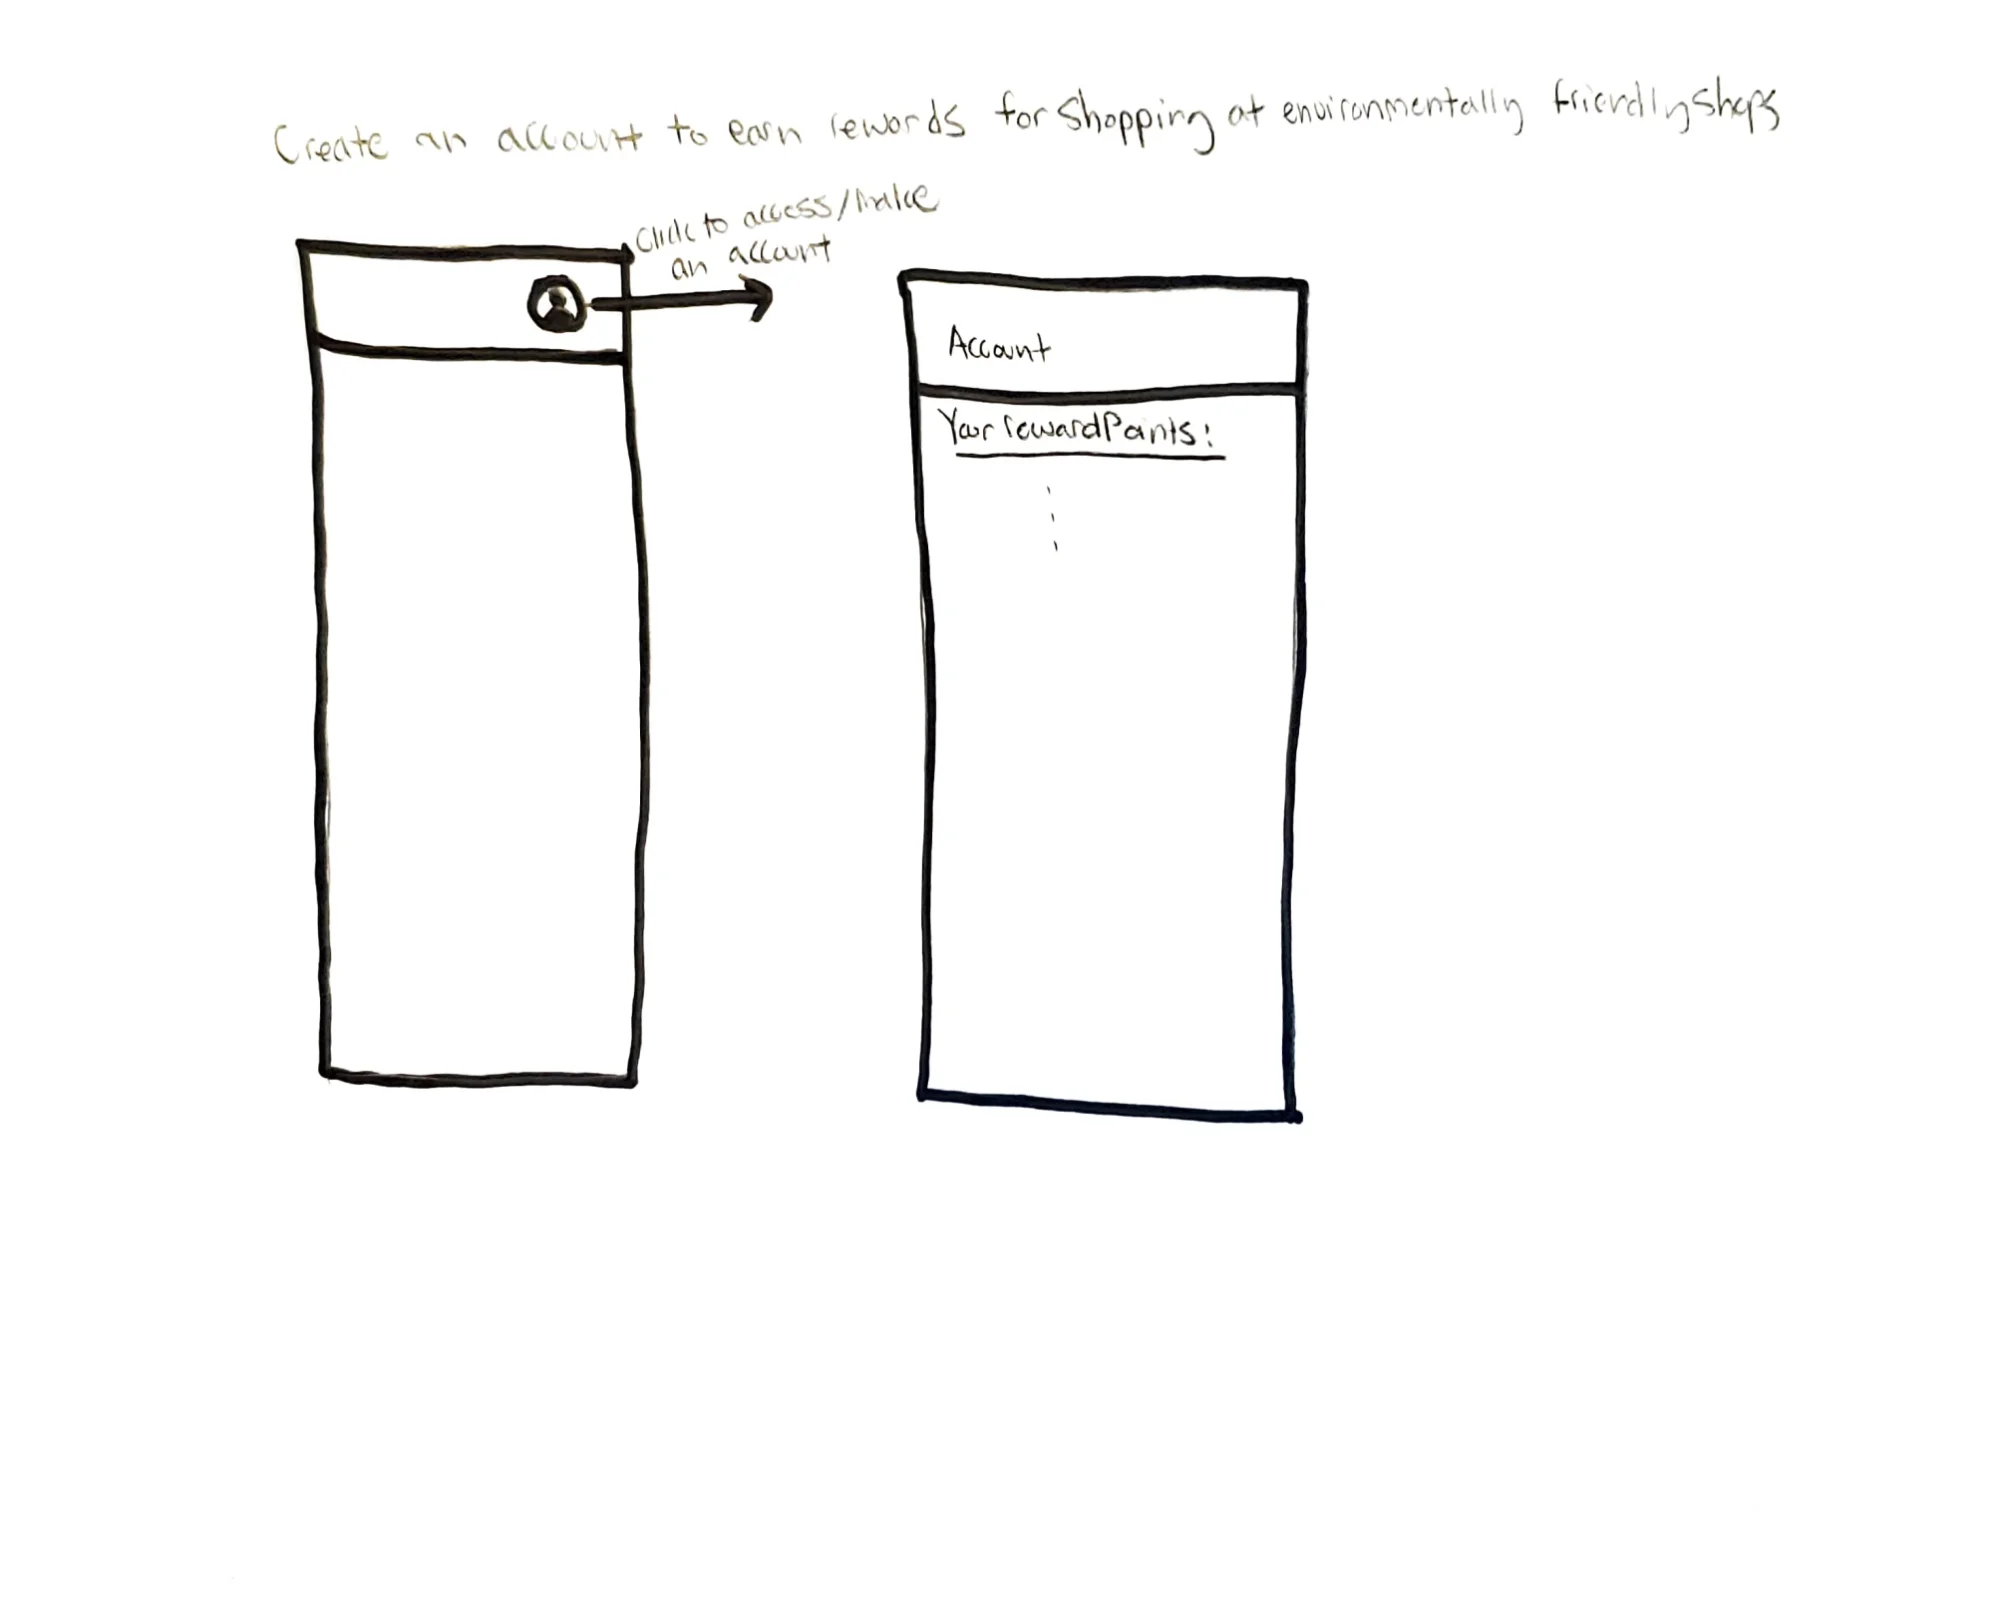 Create an account to earn rewords for shopping at environmentally friendly shops
Click to access/make
an account
Account
Your reward Points: